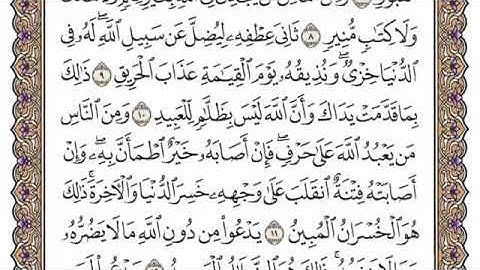 وَلَا كِتَٰبٍ مُّنِيرٍ ٨ ثَانِيَ عِطْفِهِۦ لِيُضِلَّ عَن سَبِيلِ ٱللَّهِ ۖ لَهُۥ فِى
ٱلدُّنْيَا خِزْىٌ ۖ وَنُذِيقُهُۥ يَوْمَ ٱلْقِيَٰمَةِ عَذَابَ ٱلْحَرِيقِ ٩ ذَٰلِكَ
بِمَا قَدَّمَتْ يَدَاكَ وَأَنَّ ٱللَّهَ لَيْسَ بِظَلَّٰمٍ لِّلْعَبِيدِ ١٠ وَمِنَ ٱلنَّاسِ
مَن يَعْبُدُ ٱللَّهَ عَلَىٰ حَرْفٍ ۖ فَإِنْ أَصَابَهُۥ خَيْرٌ ٱطْمَأَنَّ بِهِۦ ۖ وَإِنْ
أَصَابَتْهُ فِتْنَةٌ ٱنقَلَبَ عَلَىٰ وَجْهِهِۦ خَسِرَ ٱلدُّنْيَا وَٱلْءَاخِرَةَ ۚ ذَٰلِكَ
هُوَ ٱلْخُسْرَانُ ٱلْمُبِينُ ١١ يَدْعُوا۟ مِن دُونِ ٱللَّهِ مَا لَا يَضُرُّهُۥ